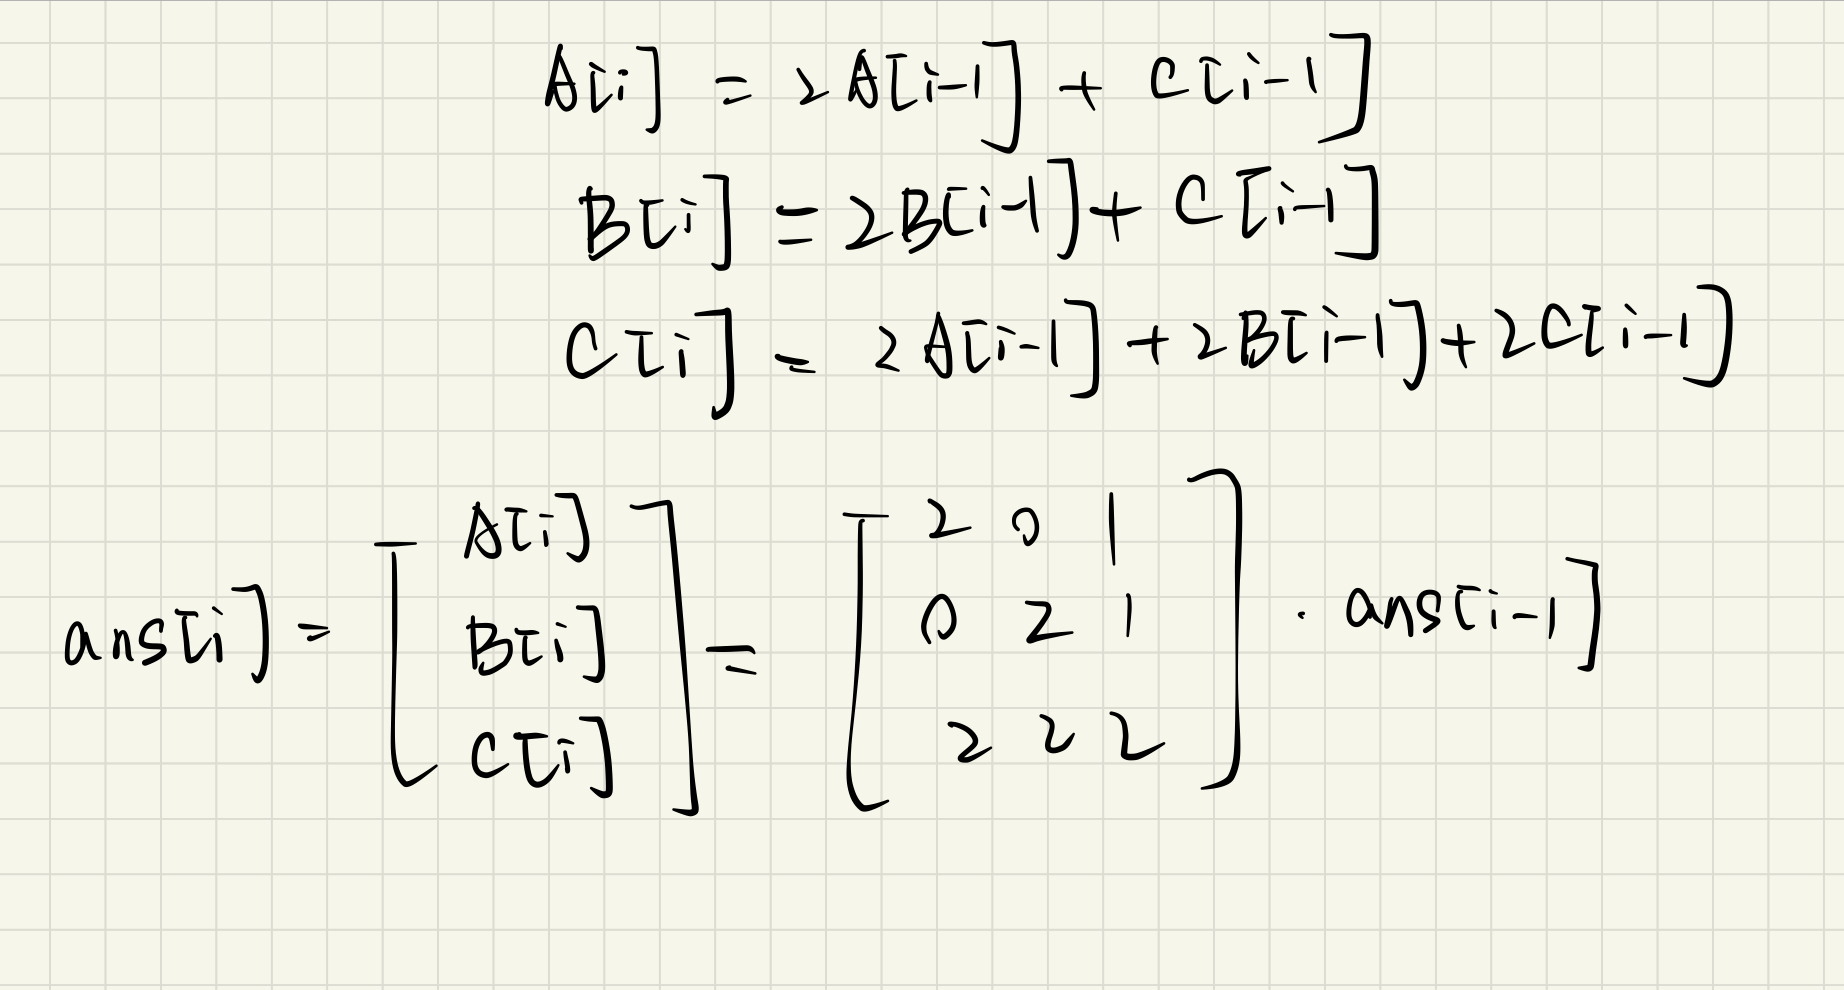 A[i] = 2A[i-1] + C[i-1]
B[i] = 2B[i-1] + C[i-1]
C[i] = 2A[i-1] + 2B[i-1] + 2C[i-1]
ans[i] = [A[i] B[i] C[i]] = [2 0 1 0 2 1 2 2 2] · ans[i-1]